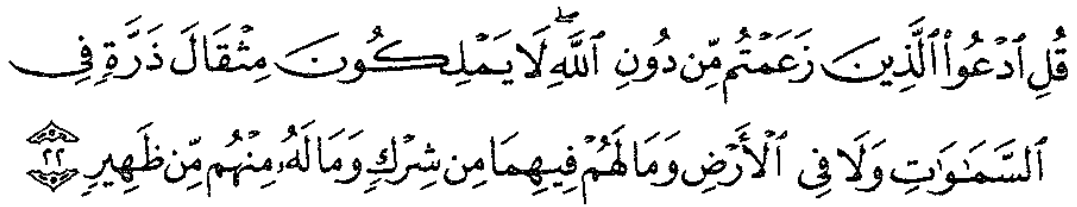 قُلِ ٱدْعُوا۟ ٱلَّذِينَ زَعَمْتُم مِّن دُونِ ٱللَّهِ ۖ لَا يَمْلِكُونَ مِثْقَالَ ذَرَّةٍ فِى
ٱلسَّمَـٰوَٰتِ وَلَا فِى ٱلْأَرْضِ وَمَا لَهُمْ فِيهِمَا مِن شِرْكٍ وَمَا لَهُۥ مِنْهُم مِّن ظَهِيرٍ ٢٢